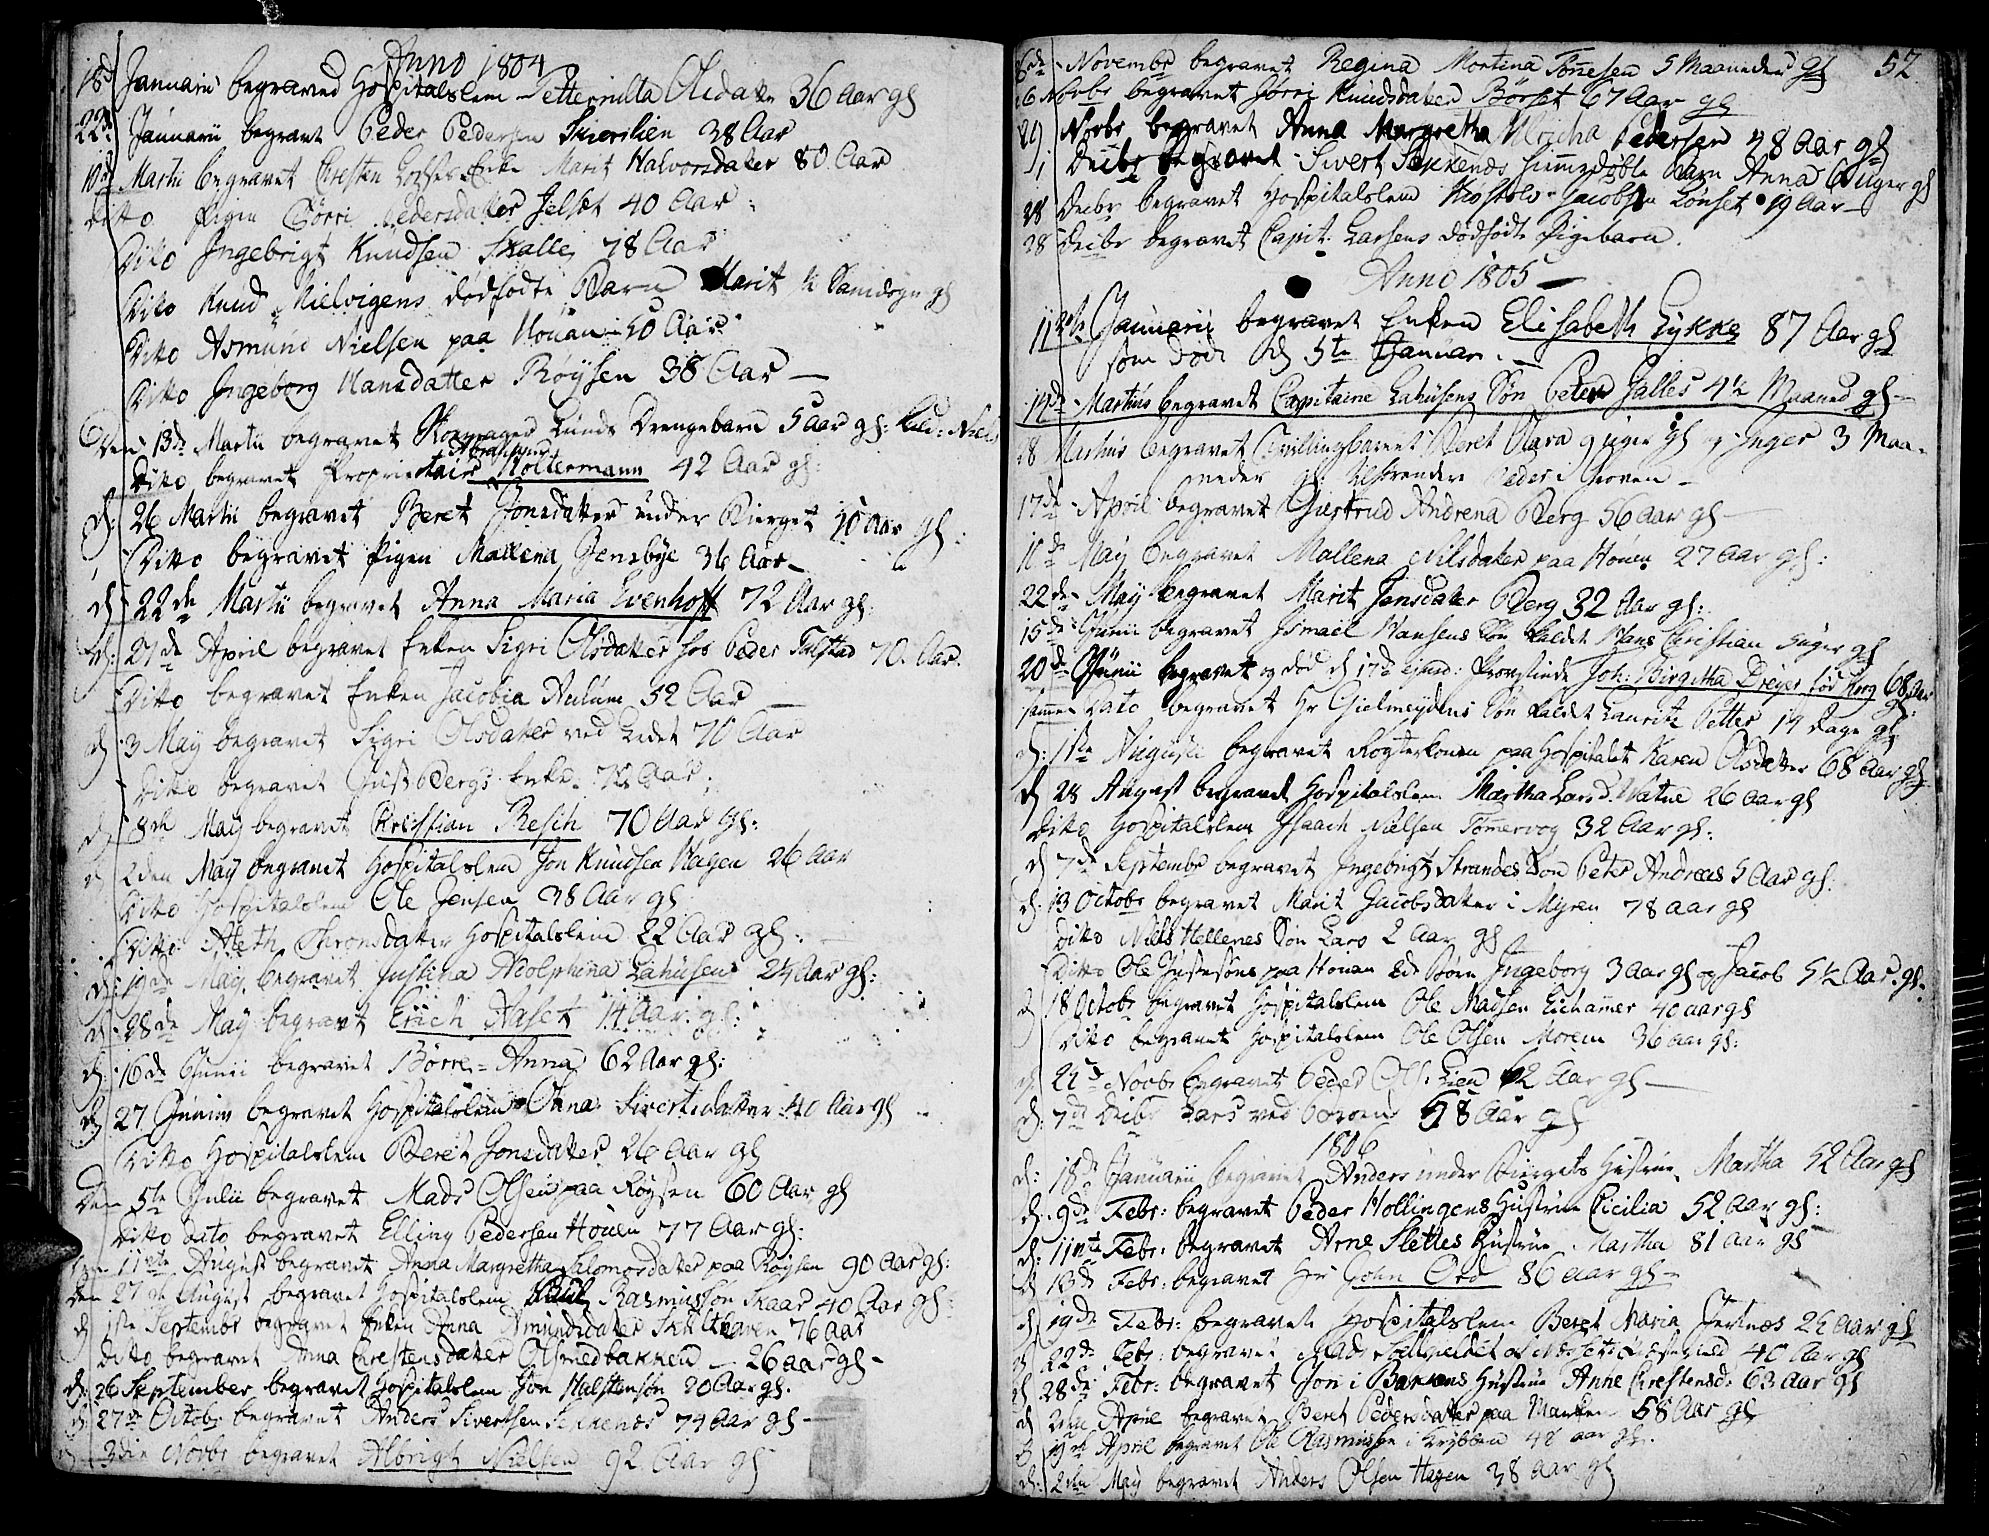 Anno 1804
18d Januarii begraved Hospitalslem Petternilla Olsdatter 36 Aar gl
22de Januarii begravt Peder Pedersen 38 Aar
10d Martii begravet Christen Enke Marit Halvorsdatter 80 Aar
Ditto Pigen Børri Pedersdatter Jelset 40 Aar
Ditto Ingebrigt Knudsen Skalle 78 Aar
Ditto Knud Mielvigens dødfødte Barn Marit
Ditto Asmund Nielsen paa Houan 50 Aar
Ditto Ingeborg Hansdatter Røysen 38 Aar
Den 13de Martii begravet Lunds Drengebarn 5 Aar gl: kald: Niels
Ditto begravet Proprietair Abraham Holtermann 42 Aar gl:
d: 26 Martii begravet Beret Jonsdatter under Bierget 10 Aar gl:
Ditto begravet Pigen Mallena Jensbye 36 Aar
d: 22de Martii begravet Anna Maria Evenhoff 72 Aar gl:
d: 27de April begravet Enken Sigri Olsdatter hos Peder 70 Aar
Ditto begravet Enken Jacobia Aulum 52 Aar
d: 3 May begravet Sigri Olsdatter ved Ledet 70 Aar
Ditto begravet Bergs Enke 72 Aar
d 8de May begravet Christian Resch 70 Aar gl:
d 2den May begravet Hospitalslem Jon Knudsen Hagen 26 Aar
Ditto Hospitalslem Ole Jensen 38 Aar gl
Ditto Aleth Hospitalslem 22 Aar gl:
d: 19de May begravet Justina Adolphina Lahusen 24 Aar gl:
d: 28de May begravt Erich Aaset 74 Aar gl:
d: 16de Junii begravet Børre-Anna 62 Aar gl:
d: 27 Junii begravet Hospitalslem Anna Sivertsdatter 40 Aar gl
Ditto Hospitalslem Beret Jonsdatter 26 Aar gl
Den 5te Julii begravet Mads Olsen paa Røysen 60 Aar gl
Ditto dato begravet Elling Pedersen Houen 77 Aar gl:
Den 11te August begravet Anna Margretha Salomonsdatter paa Røysen 90 Aar gl:
Den 27de August begravet Hospitalslem Rasmussøn Skaar 40 Aar gl:
d 1ste Septembr begravet Enken Anna Amundsdatter 76 Aar
Ditto begravet Anna Christensdatter Olsmedbakken 26 aar gl
d: 26 September begravet Hospitalslem Jon Halstensøn 20 Aar gl.
d: 27de Octobr begravet Anders Sivertsen Sekkenes 74 Aar gl
3die Novbr begravet Albrigt Nielsen 92 Aar gl
52
6de Novembr begravet Regina Martina Tønesen 5 Maaneder gl
Novbr begravet Jørri Knudsdatter Börset 67 Aar gl
29. Novbr begravet Anna Margretha Ulricha Pedersen 48 Aar gl
1 Decbr begravet Sivert Sekkenes hiemedøbte Barn Anna 6 uger gl
28 Decbr begravet Hospitalslem Jacobsen Lönset 19 Aar
28 Decbr begravet Capit: Larsens dødfødte Pigebarn.
Anno 1805
11te Januarii begravet Enken Elisabeth Lykke 87 Aar gl
som døde d 5te Januar.
14de Martius begravet Capitaine Lahusens Søn Peter Jalles 4½ Maaned gl
18 Martius begravet Tvillingbarnet Beret Clara 9 uger gl og Inger 3 Maa-
neder gl: Peder i Groven
17de April begravet Giertrud Andrena Berg 56 Aar gl
11de May begravet Mallena Nilsdatter paa Houen 27 Aar gl:
22de May begravet Marit Jensdatter Berg 32 Aar gl:
15de Junii begravet Ismael Hansens Søn kaldt Hans Christian 5 uger gl
20de Junii begravet og død d 17de ejusd: Provstinde Joh: Birgitha Dreyer fød Borg 68 Aar gl:
samme Dato begravet Hr Gielmeydens Søn kaldet Lauritz Petter 14 Dage gl
d: 1ste Augusti begravet Røgterkonen paa Hospitalet Karen Olsdatter 68 Aar gl
d 28 August begravet Hospitalslem Martha Larsd. Watne 26 aar gl
Ditto Hospitalslem Isaach Nielsen Tomervog 32 Aar gl:
d 7de Septembr begravet Ingebrigt Strandes Søn Peter Andreas 5 Aar gl:
d: 13 Octobr begravet Marit Jacobsdatter i Myren 78 aar gl
Ditto Nils Hellenes Søn Lars 2 Aar gl
Ditto Ole Justesøns paa Houan Børn Ingeborg 3 Aar gl og Jacob 5½ Aar gl.
d 18 Octobr begravet Hospitalslem Ole Madsen Eichamer 40 aar gl
Ditto begravet Hospitalslem Ole Olsen Moren 36 aar gl:
d. 22de Novbr begravet Peder Ols: Lien 62 Aar gl
d: 7de Decbr Lars ved Porten 58 Aar gl
1806
d: 18de Januarii begravet Anders under Biergets Hustrue Martha 52 Aar gl
d: 9de Febr: begravet Peder Hollingens Hustrue Cicilia 52 aar gl:
d: 11te Febr: begravet Arne Slettes Hustrue Martha 81 aar gl
d 13de Febr: begravet Hr John Ord 86 aar gl
d 19de Febr: begravet Hospitalslem Beret Maria Jertnæs 24 Aar gl
d 22de Febr: begravet Mads 40 Aar gl
d 28de Febr: begravet Jon i Bakkens Hustrue Anne Christensd: 63 Aar gl
d 2den April begravet Beret Pedersdatter paa Marken 58 Aar gl
d 19de April begravet Ole Rasmussen i Krybben 48 aar gl.
d: 2den May begravet Anders Olsen Hagen 38 aar gl